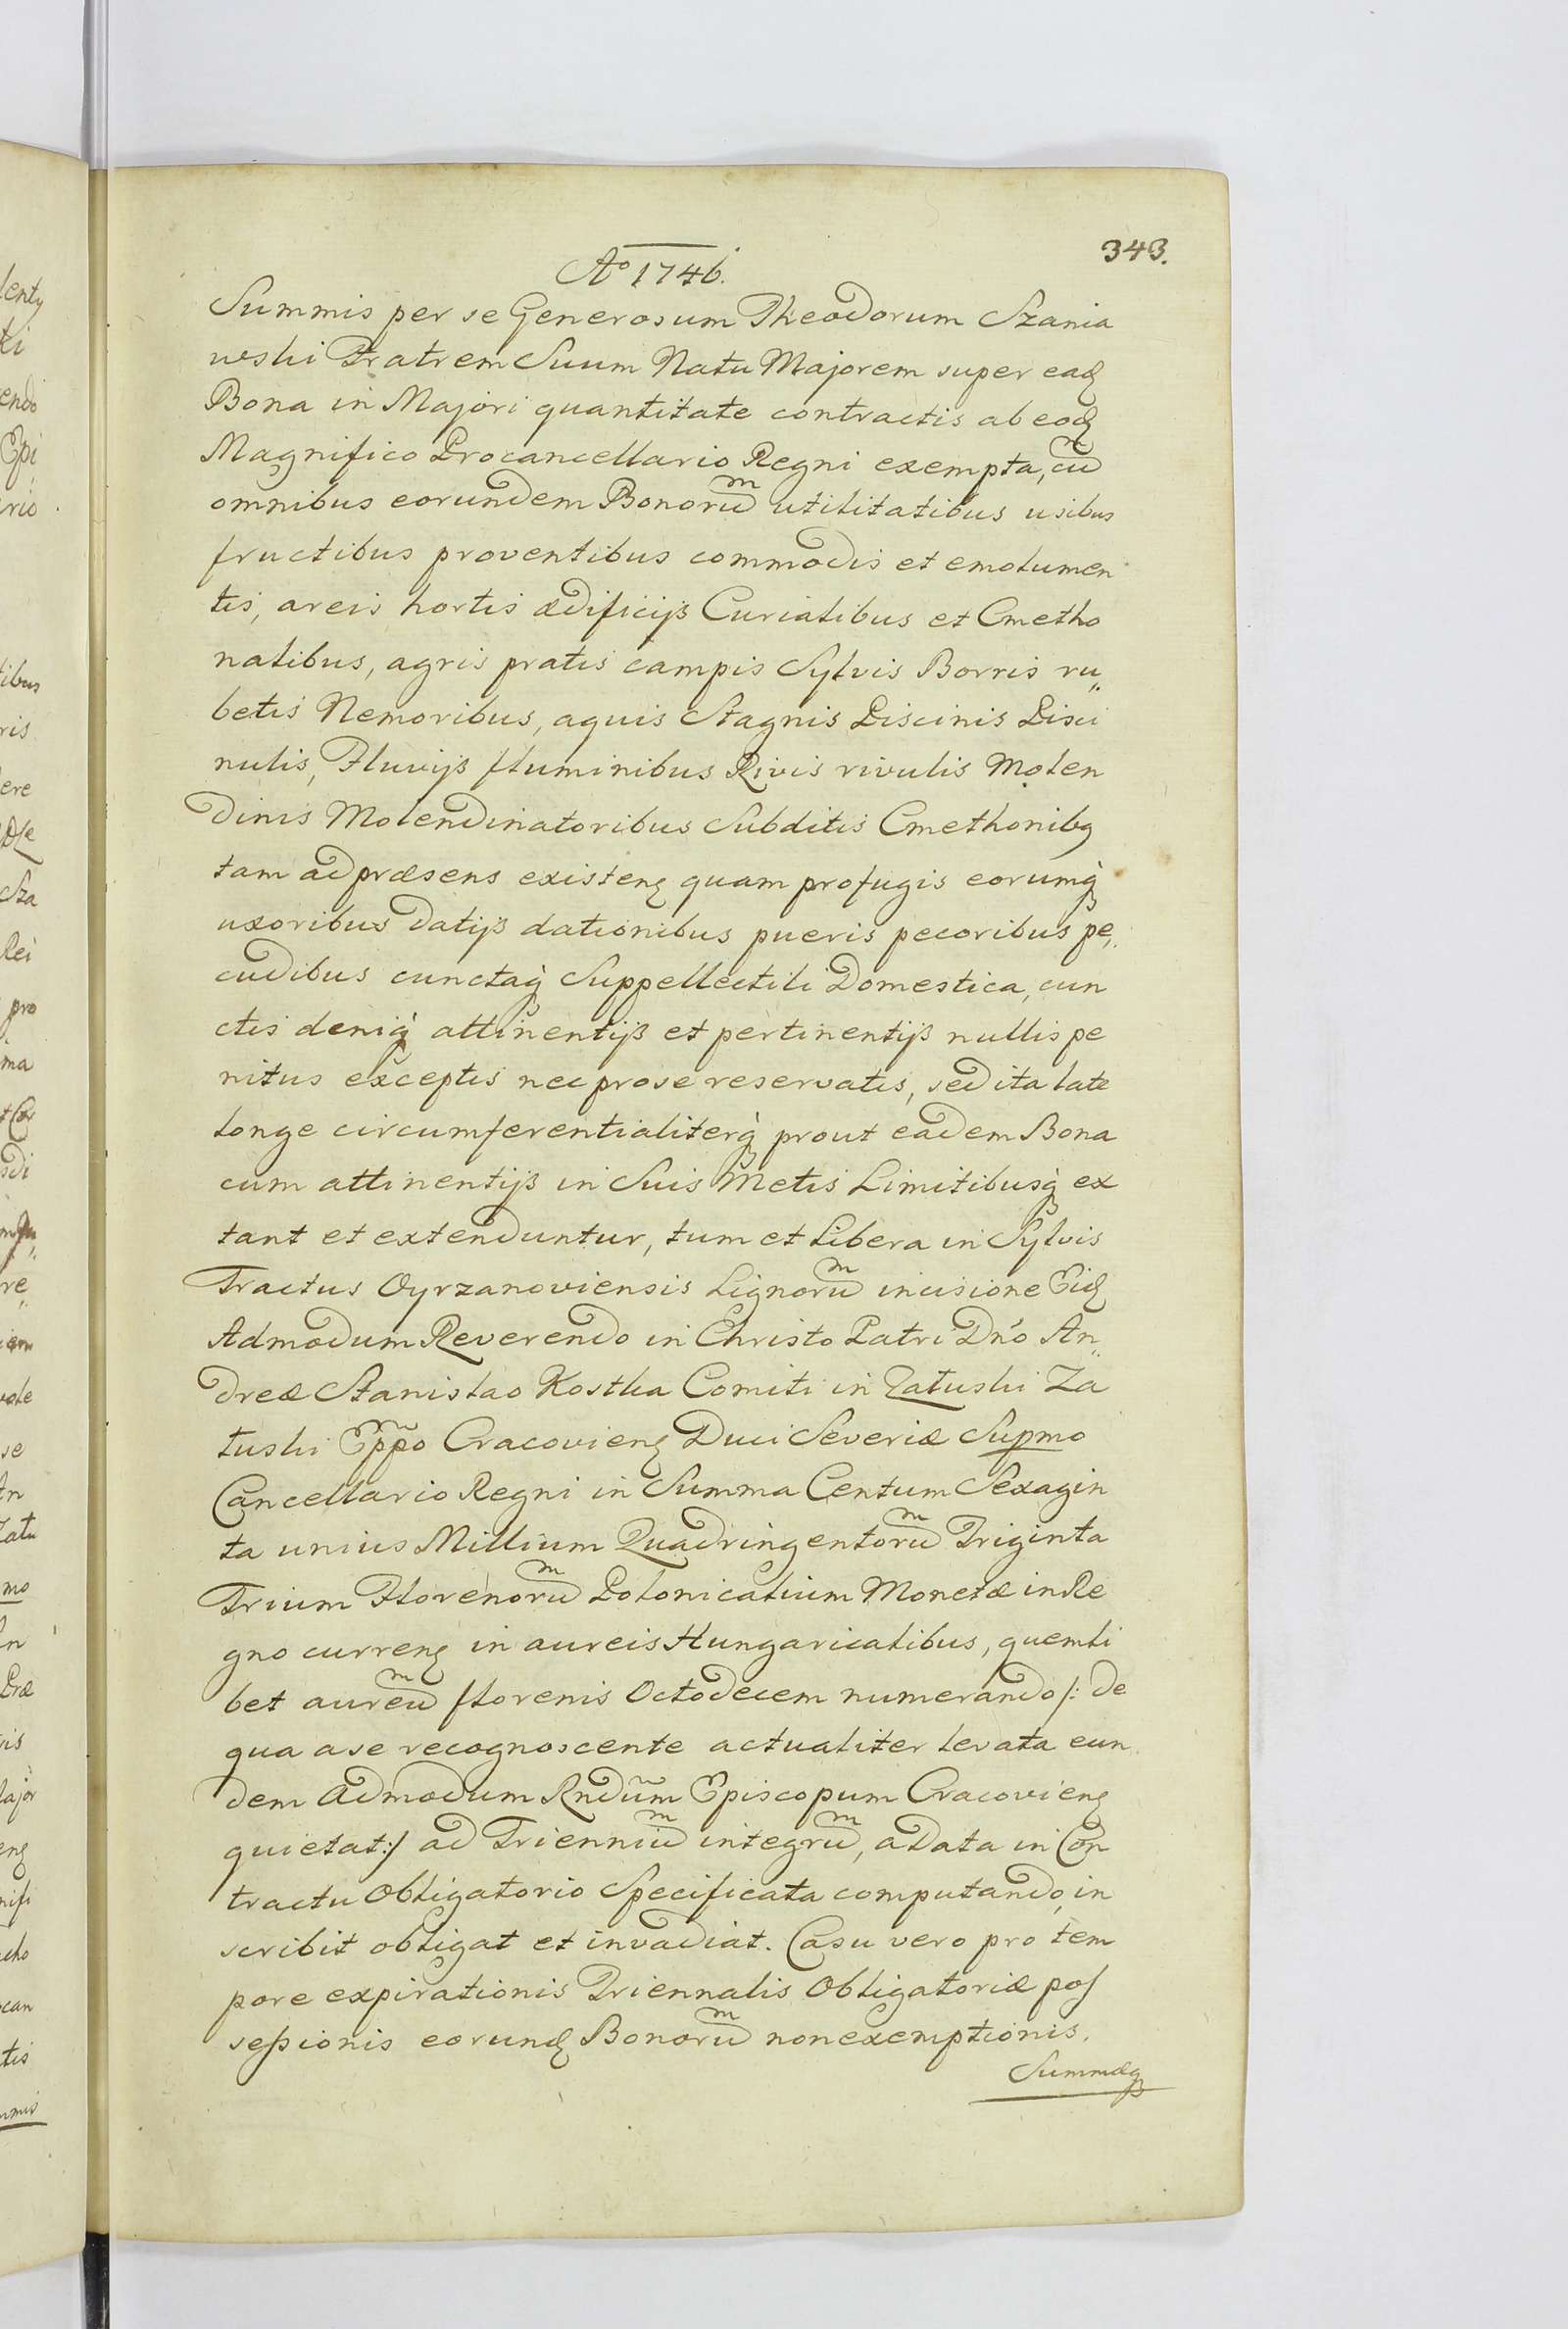 343.
Ao 1746.
Summis per se Generosum Theodorum Szania
wski Fratrem Suum Natu Majorem super eaḍ
Bona in Majori quantitate contractis ab eoḍ
Magnifico Procancellario Regni exempta, cum
omnibus eorundem Bonorum utilitatibus usibus
fructibus proventibus commodis et emolumen
tis, areis hortis ædificijs Curialibus et Cmetho
nalibus, agris pratis campis Sylvis Borris ru„
betis Nemoribus, aquis Stagnis Piscinis Pisci
nulis, Fluvijs fluminibus Rivis rivulis Molen
dinis Molendinatoribus Subditis Cmethonibq
tam ad præsens existenꝫ quam profugis eorumq̀
uxoribus datijs dationibus pueris pecoribus pe„
cudibus cunctaq̀ Suppellectili Domestica, cun
ctis deniq̀ attinentijs et pertinentijs nullis pe
nitus exceptis nec pro se reservatis, sed ita late
longe circumferentialiterq̀ prout eadem Bona
cum attinentijs in Suis Metis Limitibusq̀ ex
tant et extenduntur, tum et Libera in Sylvis
Tractus Oyrzanoviensis Lignorum incisione Eiḍ
Admodum Reverendo in Christo Patri Dno An„
dreæ Stanislao Kostka Comiti in Załuski Za
łuski Eppo Cracovienꝫ Duci Severiæ Supmo
Cancellario Regni in Summa Centum Sexagin
ta unius Millium Quadringentorum Triginta
Trium Florenorum Polonicalium Monetæ in Re
gno currenꝫ in aureis Hungaricalibus, quemli
bet aureum florenis Octodecem numerando /: de
qua a se recognoscente actualiter levata eun
dem Admodum Rndum Episcopum Cracovienꝫ
quietat :/ ad Triennium integrum, a Data in Con
tractu Obligatorio Specificata computando, in
scribit obligat et invadiat. Casu vero pro tem
pore expirationis Triennalis Obligatoriæ pos
sessionis eorunḍ Bonorum non exemptionis,
Summæq